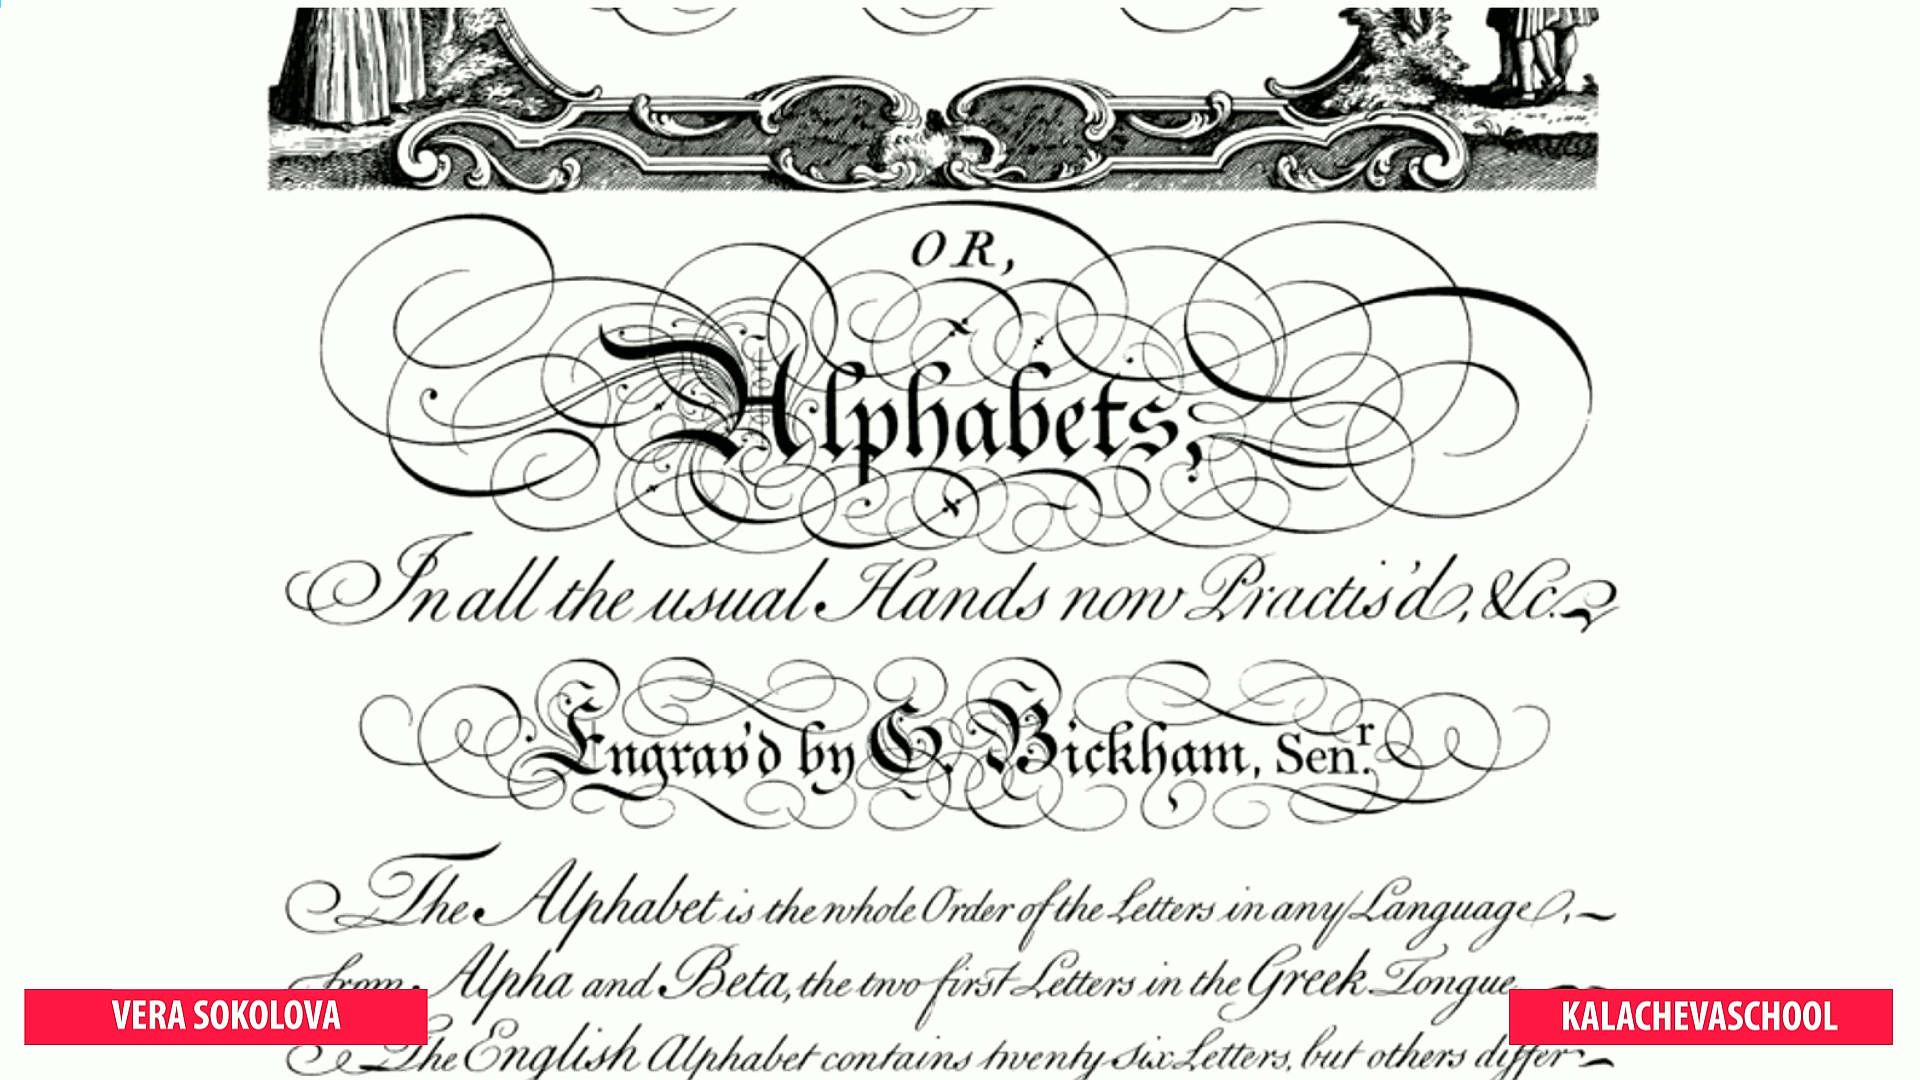 OR,
Alphabets,
In all the usual Hands now Practis'd, &c.
Engrav'd by G. Bickham, Sen.r
The Alphabet is the whole Order of the Letters in any Language,
from Alpha and Beta, the two first Letters in the Greek Tongue
The English Alphabet contains twenty six Letters, but others differ
VERA SOKOLOVA
KALACHEVASCHOOL